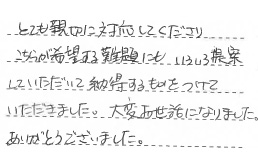 とても親切に対応してくださり
こちらが希望する難題にも いろいろ提案
していただいて納得するものをつけて
いただきました。大変お世話になりました。
ありがとうございました。